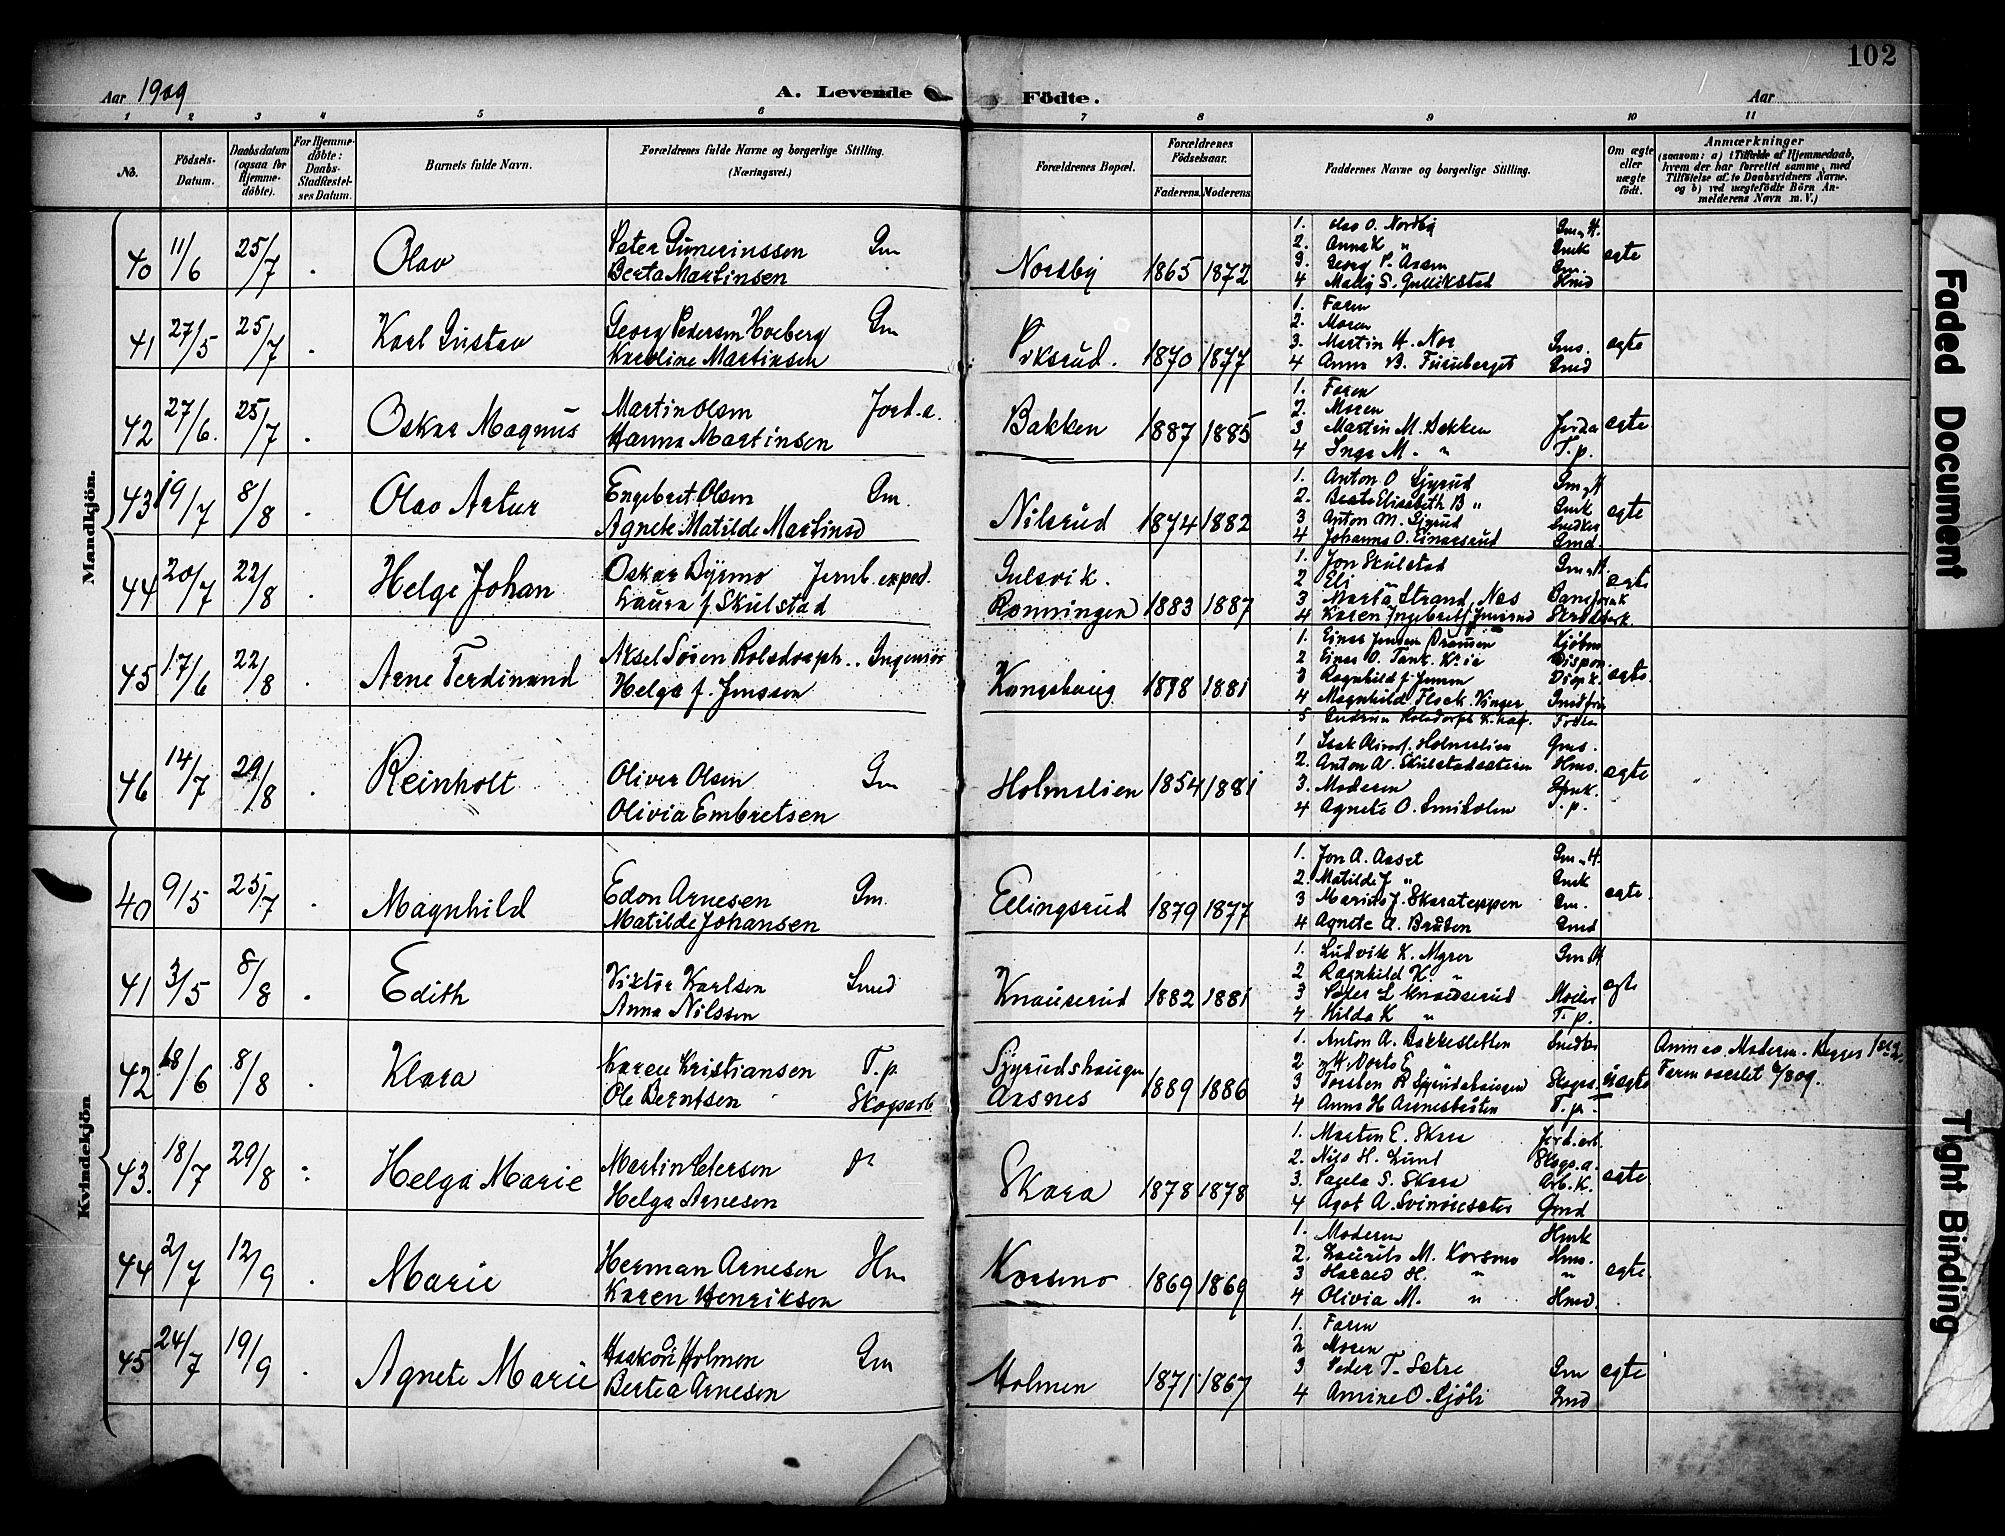 102
Aar 1909
A. Levende Födte.
Aar
1 2 3 4 5 6 7 8 9 10 11
No.
Födsels-Datum.
Daabsdatum (ogsaa for Hjemmedöbte).
For Hjemmedöbte: Daabs-Stadfæstelses Datum.
Barnets fulde Navn.
Forældrenes fulde Navne og borgerlige Stilling. (Næringsvei.)
Forældrenes Bopæl.
Forældrenes Födselsaar.
Faderens. Moderens.
Faddernes Navne og borgerlige Stilling.
Om ægte eller uægte födt.
Anmærkninger
(saasom: a) i Tilfælde af Hjemmedaab, hvem der har forrettet samme, med Tilföielse af to Daabsvidners Navne, og b) ved uægtefödte Börn Anmelderens Navn m. V.)
Mandkjön.
40 11/6 25/7 Olav
Peter Gunerinssen Gm
Berta Martinsen
Nordby 1865 1872
1. Olav O. Nordby
2. Anna K "
3. Georg P. Aasen Gm.
4 Mally S. Gullikstad
ægte
41 27/5 25/7 Karl Gustav
Georg Pedersen Hoeberg Gm
Karoline Martinsen
Viksrud. 1870 1877
1. Faren
2. Moren
3. Martin H. Nor Gms.
4 Anna B. Furuberget Gmd
ægte
42 27/6. 25/7 Oskar Magnus
Martin Olsen Jord.a.
Hanna Martinsen
Bakken 1887 1885
1. Faren
2. Moren
3 Martin M. Bakken Jorda
4 Inga M. " T.p.
ægte
43 19/7 8/8 Olav Artur
Engebret Olsen Gm.
Agnete Matilde Martinsd
Nilsrud 1874 1882
1. Anton O Gjyrud
2. Berte Elisabeth B " Gmk
3 Anton M. Gjyrud Snedker
4 Johanna O. Einarsrud Gmd.
ægte
44 20/7 22/8 Helge Johan
Oskar Byrmo Jernb. exped.
Laura f Skulstad
Gulsvik.
Rønningen 1883 1887
1. Jon Skulstad
2 Eli
3 Marta Strand, Nes
4 Karen Ingebretsf
ægte
45 17/6 22/8 Arne Ferdinand
Aksel Sören Rolsdorph.. Ingeniör
Helga f. Jenssen
Kongsberg 1878 1881
1. Einar Jensen Drammen Kjöbm
2 Einar O. Tank. Kria Dispon
3 Ragnhild f. Jensen
4 Magnhild Flock. Vinger
5 Gudrun Rolsdorph
ægte.
46 14/7 29/8 Reinholt
Oliver Olsen Gm
Olivia Embretsen
Holmslien 1854 1881
1 Isak Olivsf. Holmslien Gms.
2. Anton A. Skulstadsæteren Hms.
3. Moderen
4 Agnete O. Smiholen T.p.
ægte
Kvindekjön
40 9/5 25/7 Magnhild
Edon Arnesen Gm.
Matilde Johansen
Ellingsrud 1879 1877
1. Jon A. Aaset
2. Matilde J " Gmk
3 Marius J. Skarateppen Gm.
4 Agnete A. Bråten Gmd
ægte.
41 3/5 8/8 Edith
Viktor Karlsen Smed
Anna Nilssen
Knauserud 1882 1881
1. Ludvik K. Myrer
2 Ragnhild K "
3 Peter L Knauserud
4 Hilda K " T.p.
ægte
42 18/6 8/8 Klara
Karen Kristiansen T.p
Ole Berntsen Skogsarb
Gjyrudshaugen
Aasnes 1889 1886
1. Anton A. Bakkesletten Snedker
3 Torsten R Gjyrudshaugen Skogsa.
4 Anna H Arnesbråten T.p.
uægte
Anm av Moderen. Begges 1ste.
43. 18/7 29/8 Helga Marie
Martin Petersen
Helga Arnesen
Skara 1878 1878
1. Morten E. Skara Jord.arb.
2. Nils H. Lund Skogs.a.
3. Pagela S. Skara Arb.K.
4 Agot A. Svinåseter Gmd
ægte
44 2/7 12/9 Marie
Herman Arnesen Hm
Karen Henriksen
Korsmo 1869 1869
1. Moderen Hmk
2. Laurits M. Korsmo Hms.
3 Harald H. " "
4 Olivia M. " Hmd.
ægte.
45 24/7 19/9 Agnete Marie
Haakon Holmen Gm
Bertea Arnesen
Holmen 1871 1867
1. Faren
2 Moren
3 Peder T. Sætre Gm
4 Amine O. Gjöli Gmd
ægte
Faded Document
Tight Binding